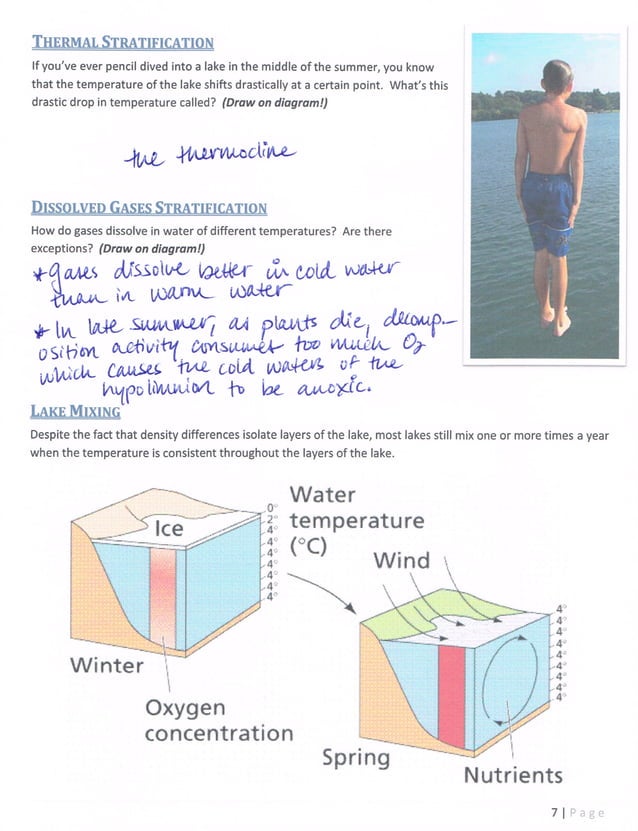 THERMAL STRATIFICATION
If you've ever pencil dived into a lake in the middle of the summer, you know
that the temperature of the lake shifts drastically at a certain point. What's this
drastic drop in temperature called? (Draw on diagram!)
the thermocline
DISSOLVED GASES STRATIFICATION
How do gases dissolve in water of different temperatures? Are there
exceptions? (Draw on diagram!)
* gases dissolve better in cold water
than in warm water
* In late summer, as plants die, decomp-
osition activity consumes too much O2
which causes the cold waters of the
hypolimnion to be anoxic.
LAKE MIXING
Despite the fact that density differences isolate layers of the lake, most lakes still mix one or more times a year
when the temperature is consistent throughout the layers of the lake.
Water
temperature
(°C)
Ice
0°
2°
4°
4°
4°
4°
4°
4°
4°
Wind
Winter
Oxygen
concentration
4°
4°
4°
4°
4°
4°
4°
4°
4°
Spring
Nutrients
7 | Page